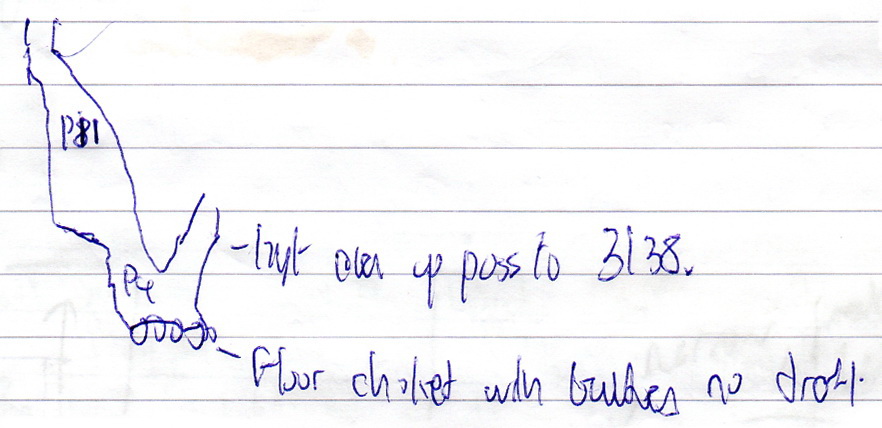 P11
P4
over up pass to 3138.
Floor choked with boulders no draft.